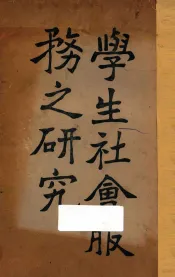 學生社會服
務之研究